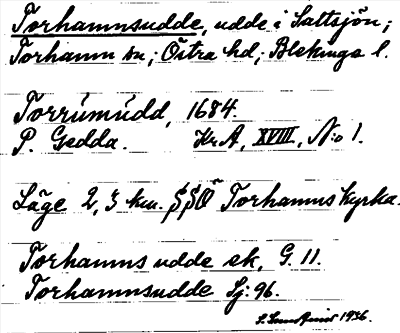 Torhamnsudde, udde i Saltsjön;
Torhamn sn; Östra hd; Blekinge l.
Torrúmúdd, 1684.
P. Gedda. Kr A, XVIII, N:o 1.
Läge 2,3 km. SSÖ Torhamns kyrka.
Torhamns udde ek. G. 11.
Torhamnsudde Sj: 96.
1936.